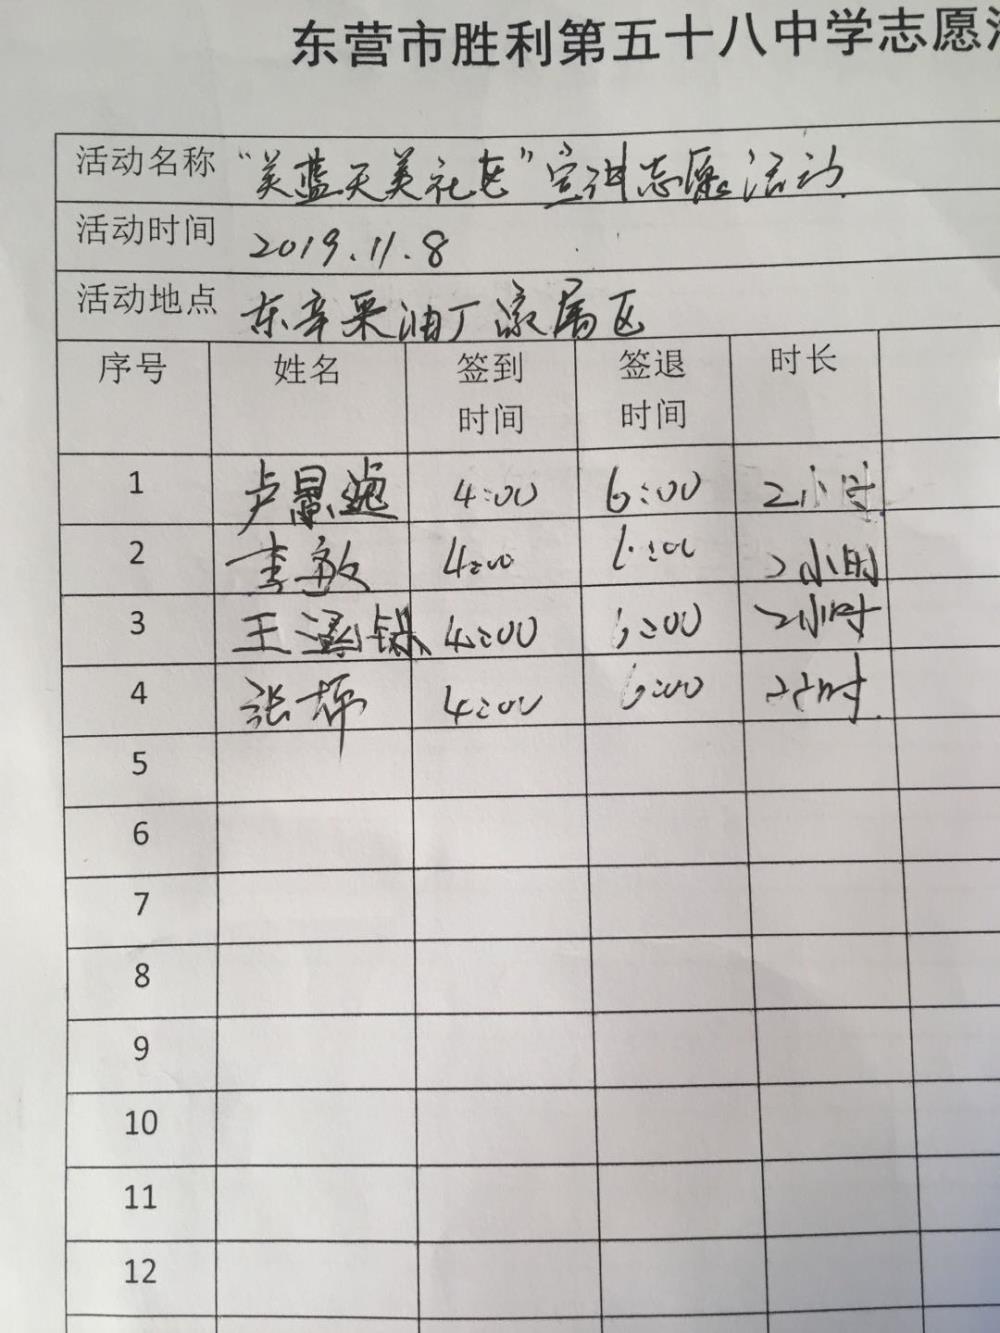 东营市胜利第五十八中学志愿
活动名称 “美蓝天美社区”宣讲志愿活动
活动时间 2019.11.8
活动地点 东辛采油厂家属区
序号 姓名 签到时间 签退时间 时长
1 卢景 4:00 6:00 2小时
2 李敏 4:00 6:00 2小时
3 王 4:00 6:00 2小时
4 张 4:00 6:00 2小时
5
6
7
8
9
10
11
12